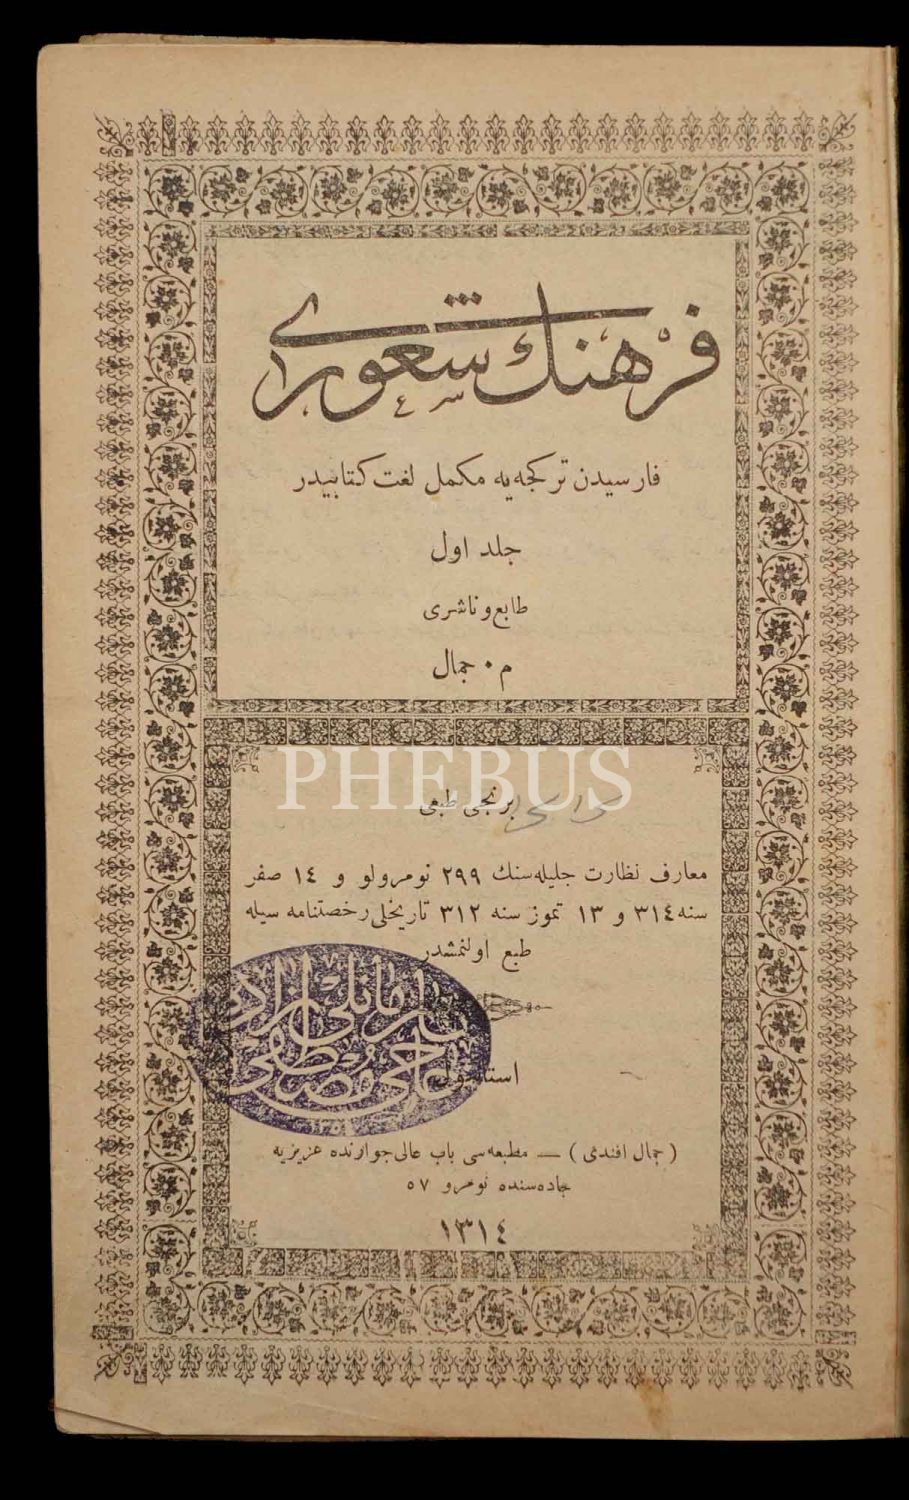 فرهنك شعوری
فارسیدن ترکجه‌یه مکمل لغت کتابیدر
جلد اول
طابع و ناشری
م ۰ جمال
PHEBUS
برنجی طبعی
معارف نظارت جلیله‌سنك ٢٩٩ نومرولو و ١٤ صفر
سنه ٣١٤ و ١٣ تموز سنه ٣١٢ تاریخلی رخصتنامه سیله
طبع اولنمشدر
استانبول
( جمال افندی ) — مطبعه‌سی باب عالی جوارنده عزیزیه
جاده‌سنده نومرو ٥٧
١٣١٤